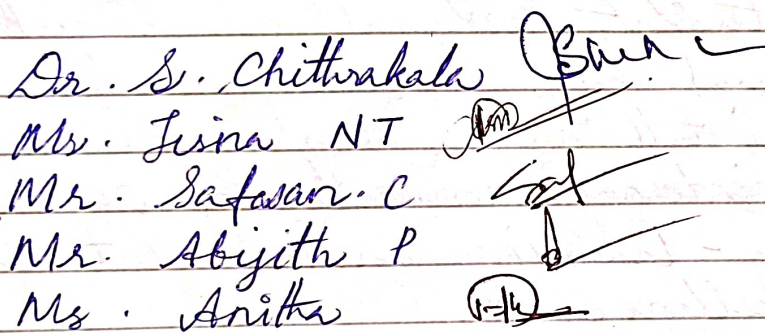 Dr. S. Chithrakala
Ms. Jisna NT
Mr. Safasan. C
Mr. Abijith P
Ms. Anitha